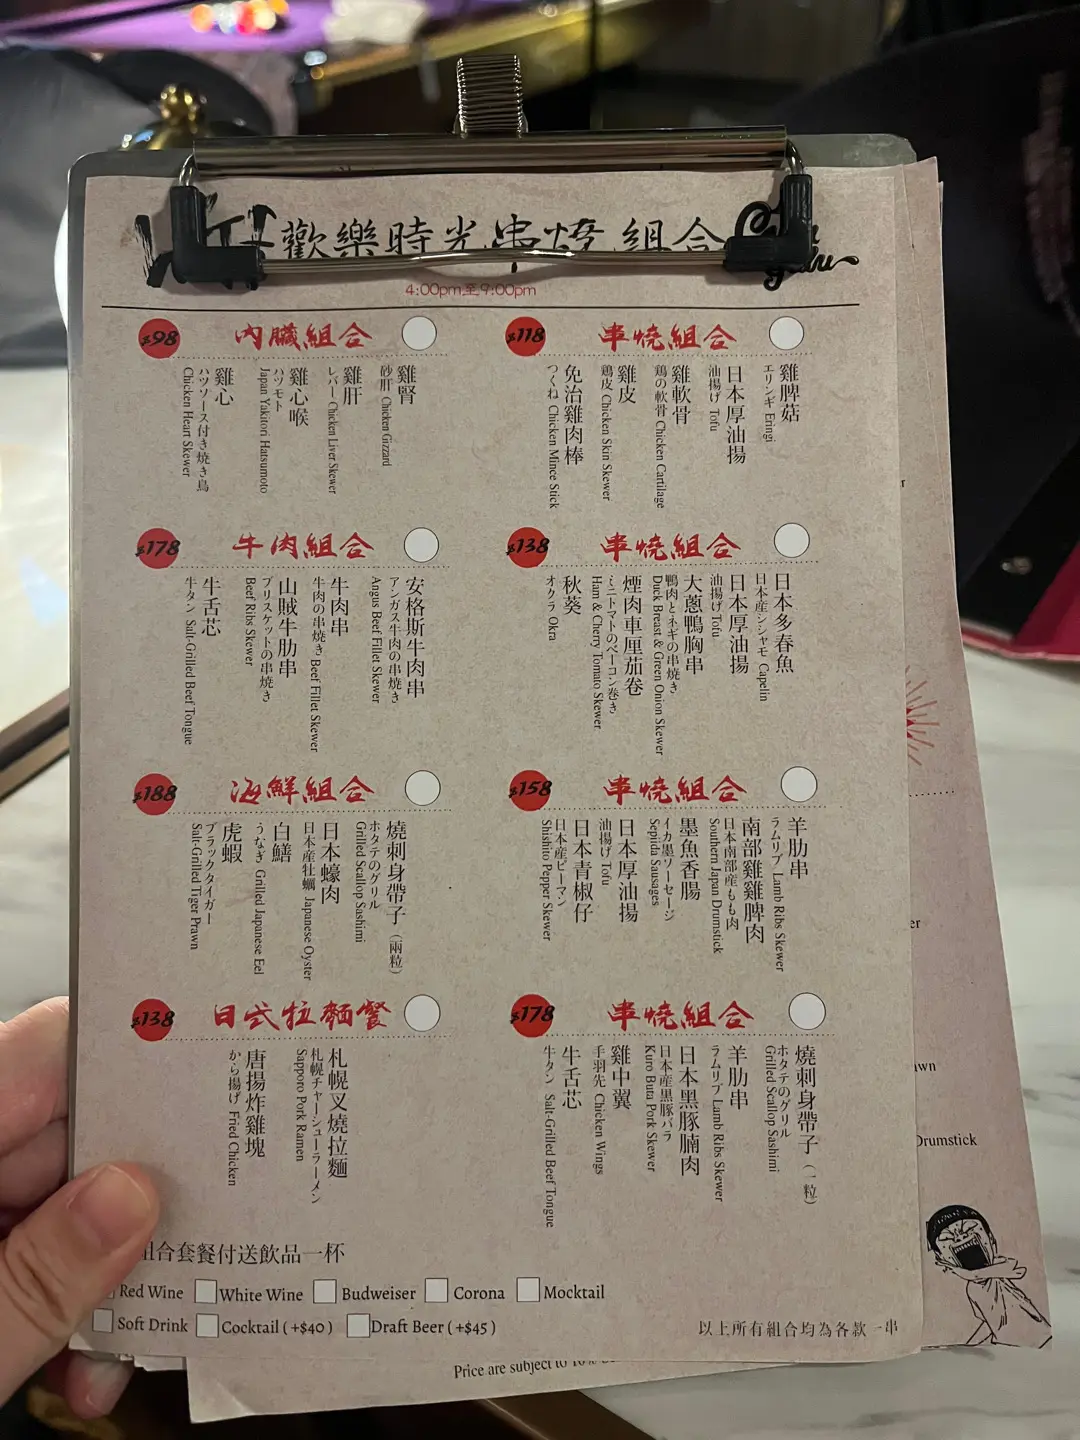 歡樂時光串燒組合
4:00pm至9:00pm
$98
內臟組合
雞腎
砂肝 Chicken Gizzard
雞肝
レバー Chicken Liver Skewer
雞心喉
ハツモト
Japan Yakitori Hatsumoto
雞心
ハツソース付き焼き鳥
Chicken Heart Skewer
$118
串燒組合
雞脾菇
エリンギ Eringi
日本厚油揚
油揚げ Tofu
雞軟骨
鶏の軟骨 Chicken Cartilage
雞皮
鶏皮 Chicken Skin Skewer
免治雞肉棒
つくね Chicken Mince Stick
$178
牛肉組合
安格斯牛肉串
アンガス牛肉の串焼き
Angus Beef Fillet Skewer
牛肉串
牛肉の串焼き Beef Fillet Skewer
山賊牛肋串
ブリスケットの串焼き
Beef Ribs Skewer
牛舌芯
牛タン Salt-Grilled Beef Tongue
$138
串燒組合
日本多春魚
日本産シシャモ Capelin
日本厚油揚
油揚げ Tofu
大蔥鴨胸串
鴨肉とネギの串焼き
Duck Breast & Green Onion Skewer
煙肉車厘茄卷
ミニトマトのベーコン巻き
Ham & Cherry Tomato Skewer
秋葵
オクラ Okra
$188
海鮮組合
燒刺身帶子（兩粒）
ホタテのグリル
Grilled Scallop Sashimi
日本蠔肉
日本産牡蠣 Japanese Oyster
白鱔
うなぎ Grilled Japanese Eel
虎蝦
ブラックタイガー
Salt-Grilled Tiger Prawn
$158
串燒組合
羊肋串
ラムリブ Lamb Ribs Skewer
南部雞雞脾肉
日本南部産もも肉
Southern Japan Drumstick
墨魚香腸
イカ墨ソーセージ
Sepiida Sausages
日本厚油揚
油揚げ Tofu
日本青椒仔
日本産ピーマン
Shishito Pepper Skewer
$138
日式拉麵餐
札幌叉燒拉麵
札幌チャーシューラーメン
Sapporo Pork Ramen
唐揚炸雞塊
から揚げ Fried Chicken
$178
串燒組合
燒刺身帶子（一粒）
ホタテのグリル
Grilled Scallop Sashimi
羊肋串
ラムリブ Lamb Ribs Skewer
日本黑豚腩肉
日本産黒豚バラ
Kuro Buta Pork Skewer
雞中翼
手羽先 Chicken Wings
牛舌芯
牛タン Salt-Grilled Beef Tongue
組合套餐付送飲品一杯
Red Wine White Wine Budweiser Corona Mocktail
Soft Drink Cocktail ( +$40 ) Draft Beer ( +$45 )
以上所有組合均為各款一串
Price are subject to 10%
Drumstick